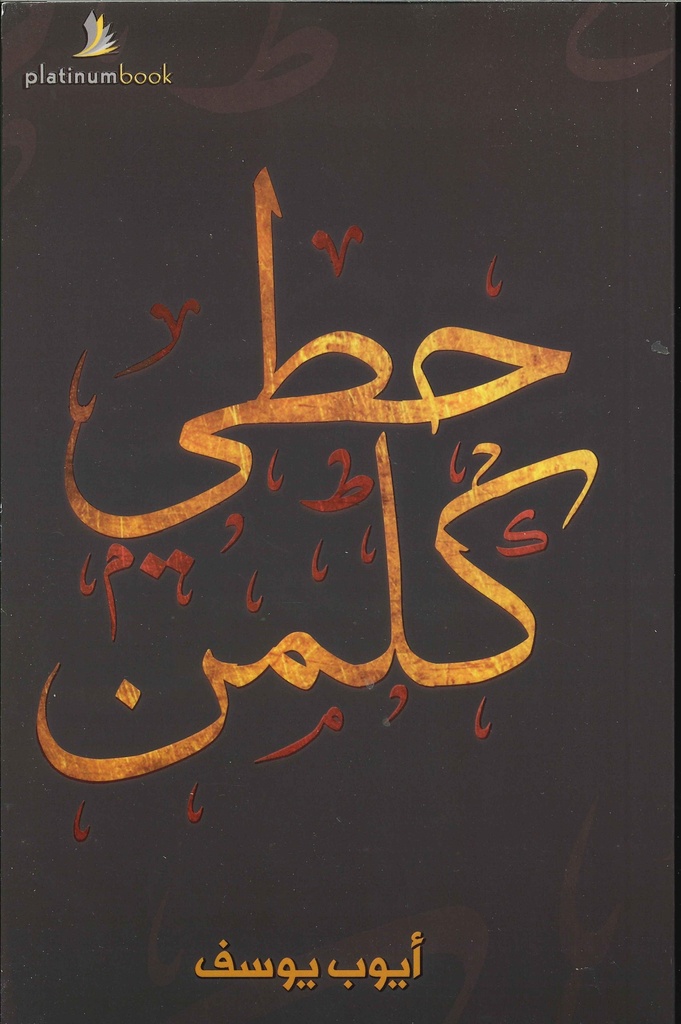 platinumbook
حطي
كلمن
أيوب يوسف